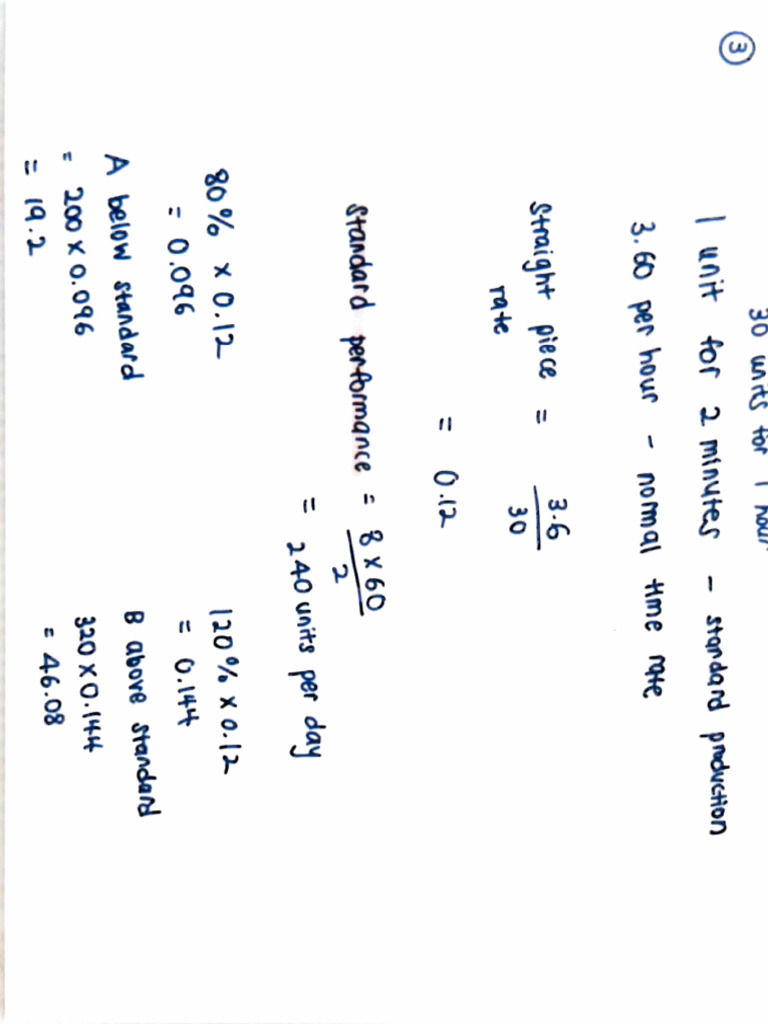 ③
30 units for 1 hour
1 unit for 2 minutes - standard production
3.60 per hour - normal time rate
straight piece rate = 3.6 / 30
= 0.12
standard performance = 8 x 60 / 2
= 240 units per day
80% x 0.12
= 0.096
A below standard
= 200 x 0.096
= 19.2
120% x 0.12
= 0.144
B above standard
320 x 0.144
= 46.08